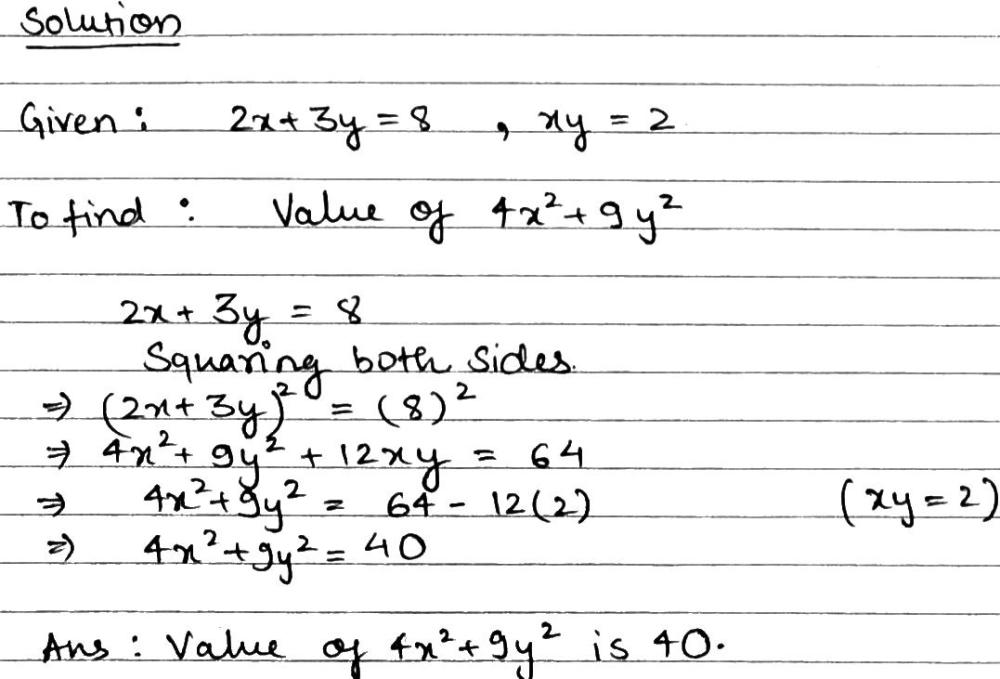 Solution
Given : 2x + 3y = 8 , xy = 2
To find : Value of 4x² + 9y²
2x + 3y = 8
Squaring both sides.
⇒ (2x + 3y)² = (8)²
⇒ 4x² + 9y² + 12xy = 64
⇒ 4x² + 9y² = 64 - 12(2) (xy = 2)
⇒ 4x² + 9y² = 40
Ans : Value of 4x² + 9y² is 40.